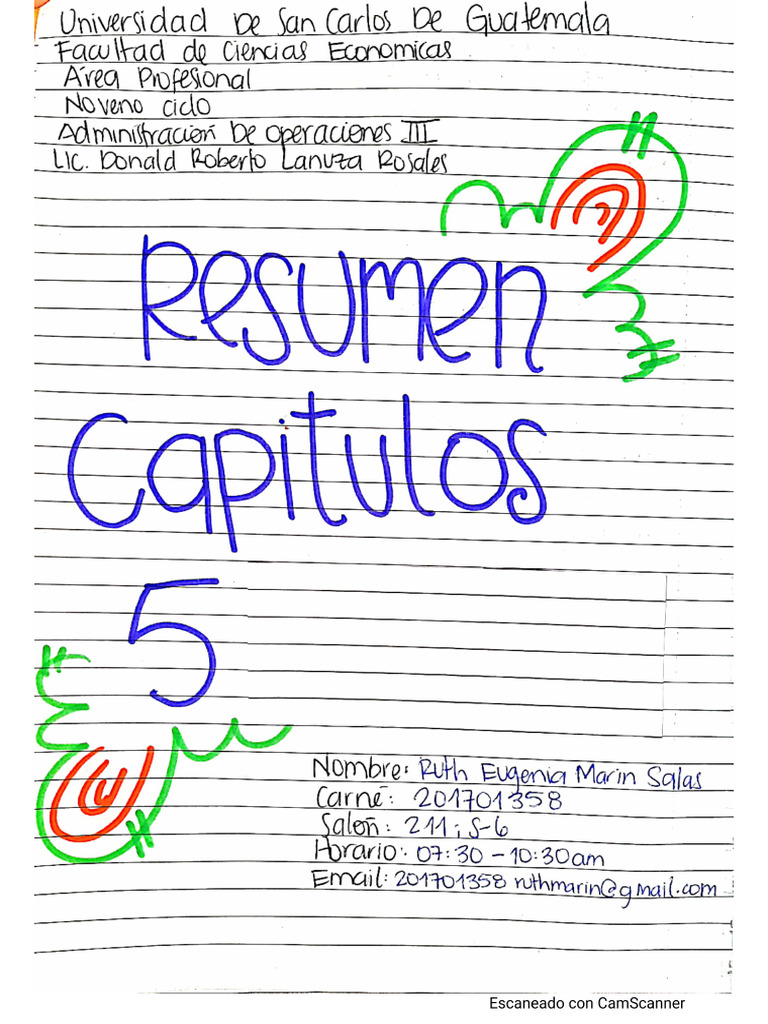 Universidad De San Carlos De Guatemala
Facultad de Ciencias Economicas
Área Profesional
Noveno ciclo
Administración De operaciones III
Lic. Donald Roberto Lanuza Rosales
Resumen
Capitulos
5
Nombre: Ruth Eugenia Marin Salas
Carné: 201701358
Salón: 211; S-6
Horario: 07:30 - 10:30am
Email: 201701358ruthmarin@gmail.com
Escaneado con CamScanner